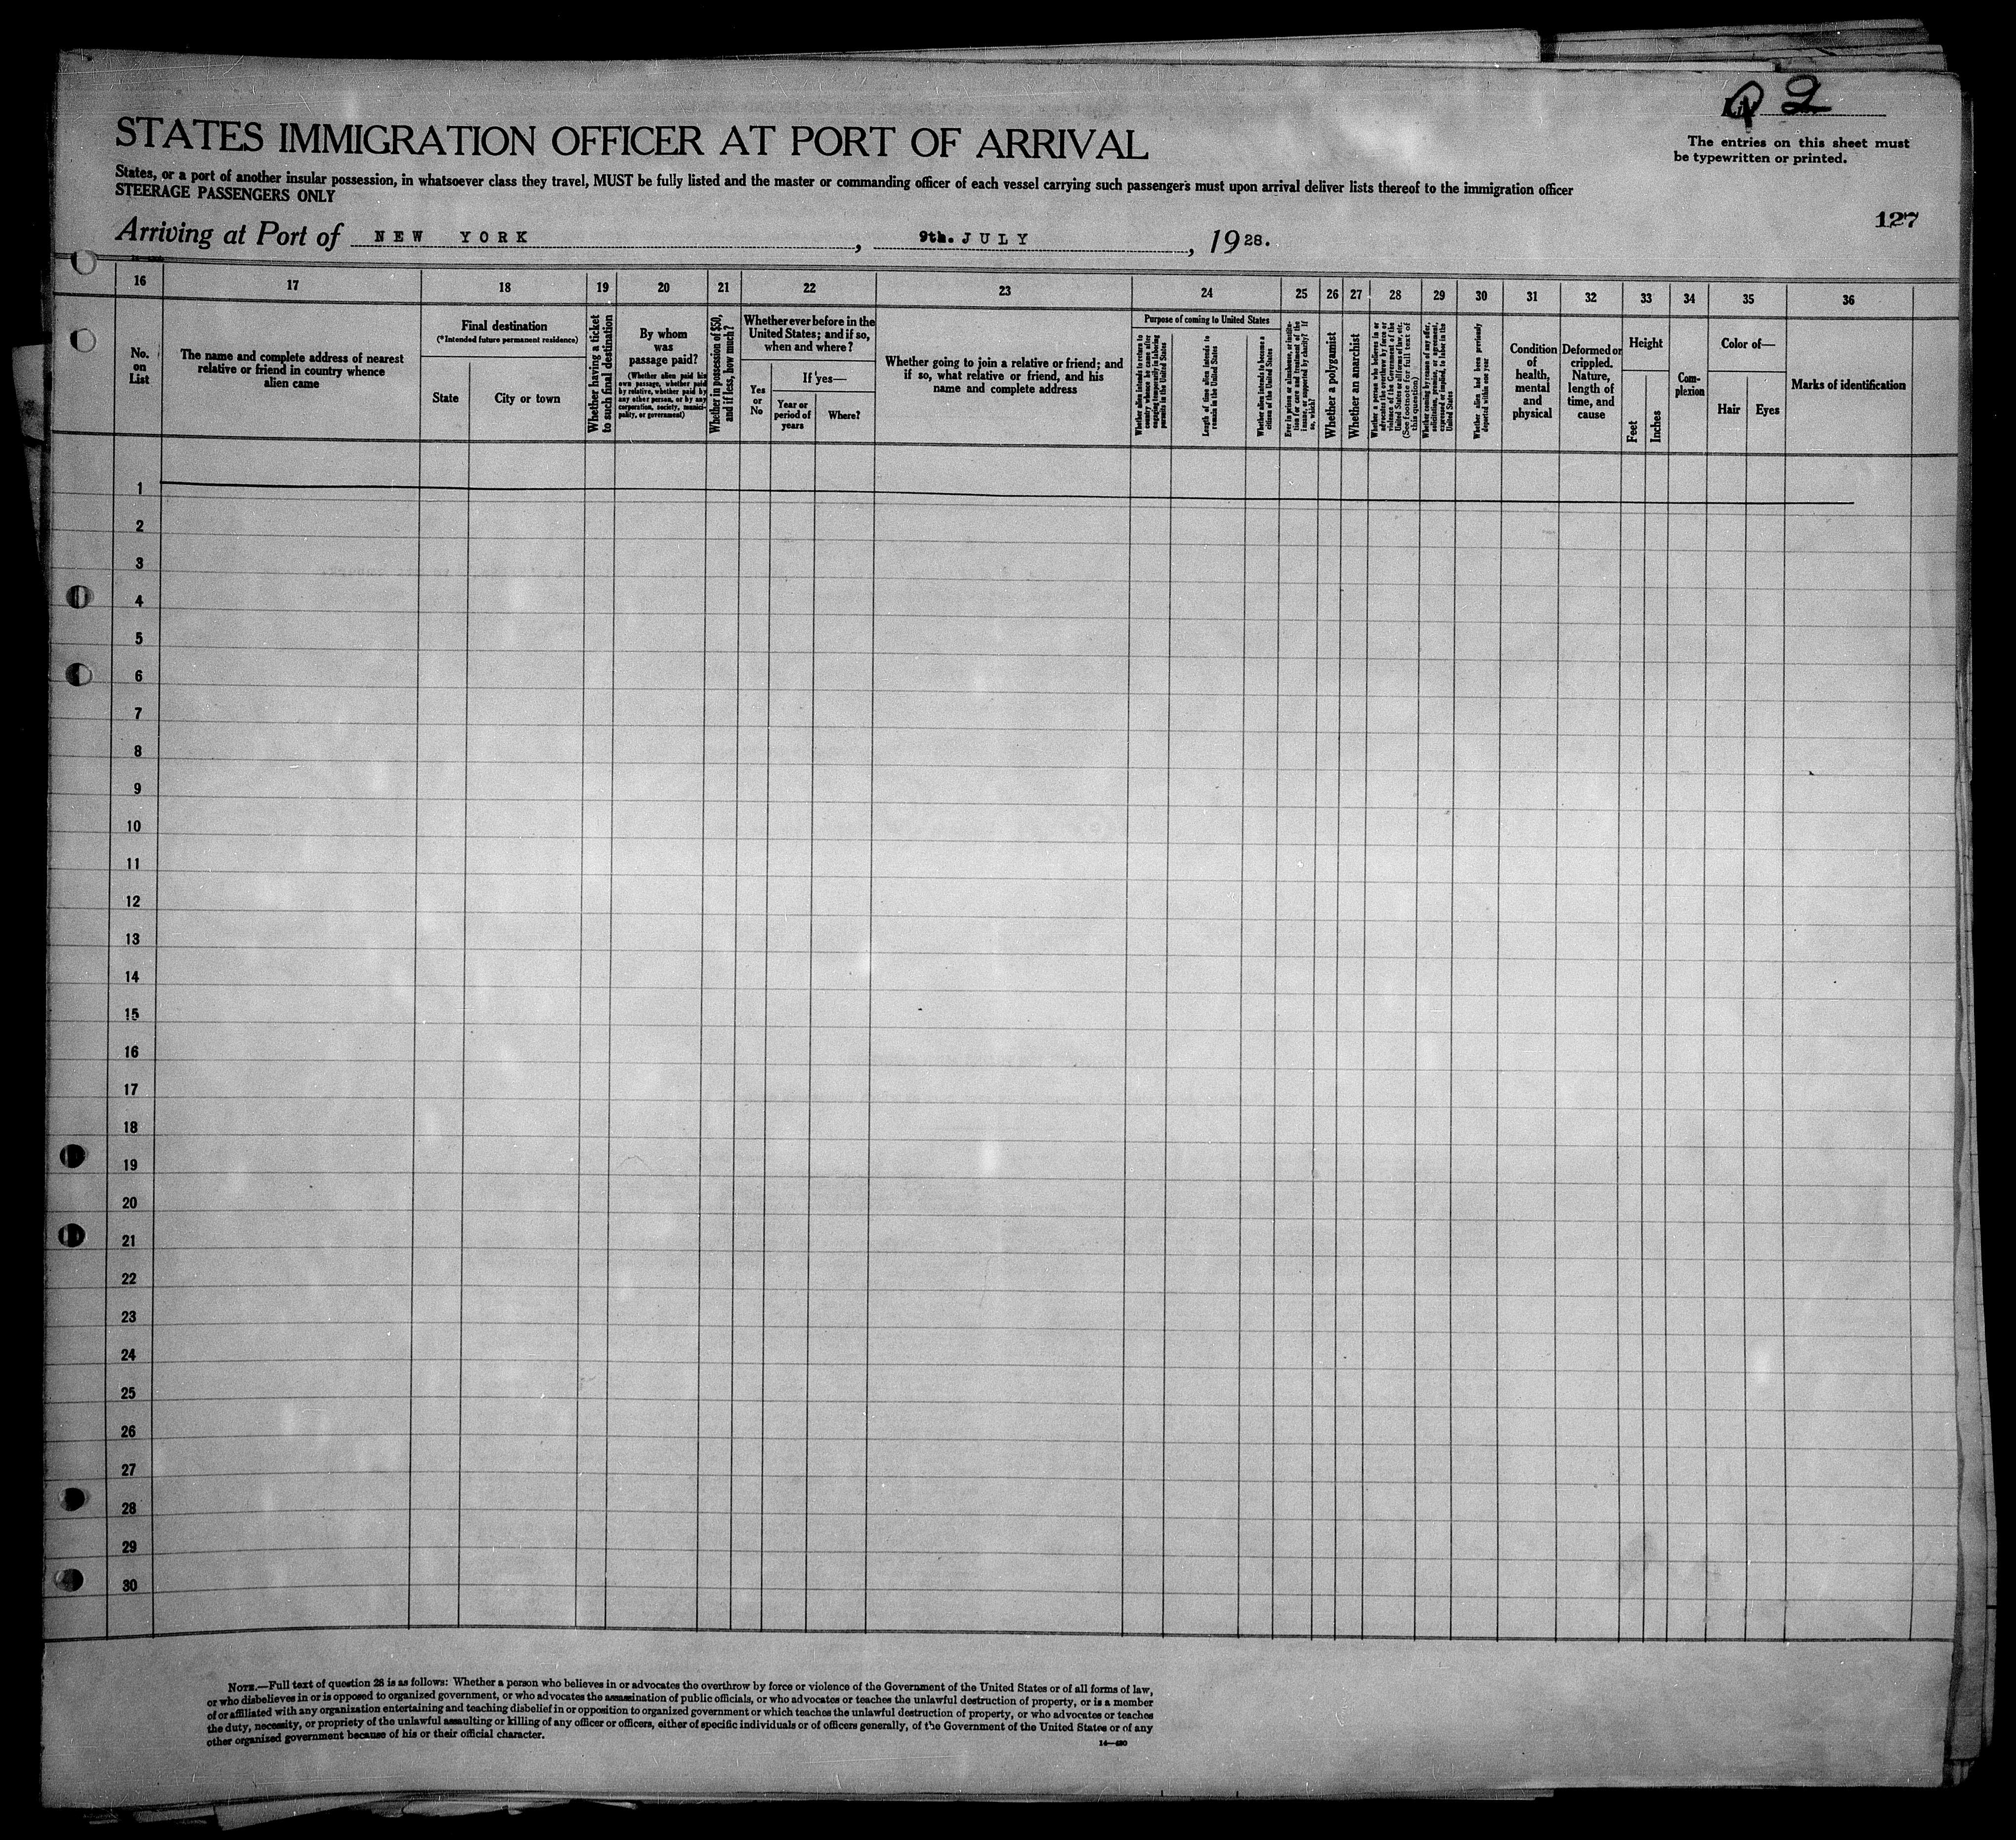 2
STATES IMMIGRATION OFFICER AT PORT OF ARRIVAL
The entries on this sheet must
be typewritten or printed.
States, or a port of another insular possession, in whatsoever class they travel, MUST be fully listed and the master or commanding officer of each vessel carrying such passengers must upon arrival deliver lists thereof to the immigration officer
STEERAGE PASSENGERS ONLY
127
Arriving at Port of NEW YORK, 9th. JULY, 1928.
16 17 18 19 20 21 22 23 24 25 26 27 28 29 30 31 32 33 34 35 36
No.
on
List
The name and complete address of nearest
relative or friend in country whence
alien came
Final destination
(*Intended future permanent residence)
State
City or town
Whether having a ticket
to such final destination
By whom
was
passage paid?
(Whether alien paid his
own passage, whether paid
by relative, whether paid by
any other person, or by any
corporation, society, munici-
pality, or government)
Whether in possession of $50,
and if less, how much?
Whether ever before in the
United States; and if so,
when and where?
Yes
or
No
If yes—
Year or
period of
years
Where?
Whether going to join a relative or friend; and
if so, what relative or friend, and his
name and complete address
Purpose of coming to United States
Whether alien intends to return to
country whence he came after
engaging temporarily in laboring
pursuits in the United States
Length of time alien intends to
remain in the United States
Whether alien intends to become a
citizen of the United States
Ever in prison or almshouse, or institu-
tion for care and treatment of the
insane, or supported by charity? If
so, which?
Whether a polygamist
Whether an anarchist
Whether a person who believes in or
advocates the overthrow by force or
violence of the Government of the
United States or all forms of law, etc.
(See footnote for full text of
this question)
Whether coming by reason of any offer,
solicitation, promise, or agreement,
expressed or implied, to labor in the
United States
Whether alien had been previously
deported within one year
Condition
of
health,
mental
and
physical
Deformed or
crippled.
Nature,
length of
time, and
cause
Height
Feet
Inches
Com-
plexion
Color of—
Hair
Eyes
Marks of identification
1
2
3
4
5
6
7
8
9
10
11
12
13
14
15
16
17
18
19
20
21
22
23
24
25
26
27
28
29
30
NOTE.—Full text of question 28 is as follows: Whether a person who believes in or advocates the overthrow by force or violence of the Government of the United States or of all forms of law,
or who disbelieves in or is opposed to organized government, or who advocates the assassination of public officials, or who advocates or teaches the unlawful destruction of property, or is a member
of or affiliated with any organization entertaining and teaching disbelief in or opposition to organized government or which teaches the unlawful destruction of property, or who advocates or teaches
the duty, necessity, or propriety of the unlawful assaulting or killing of any officer or officers, either of specific individuals or of officers generally, of the Government of the United States or of any
other organized government because of his or their official character.